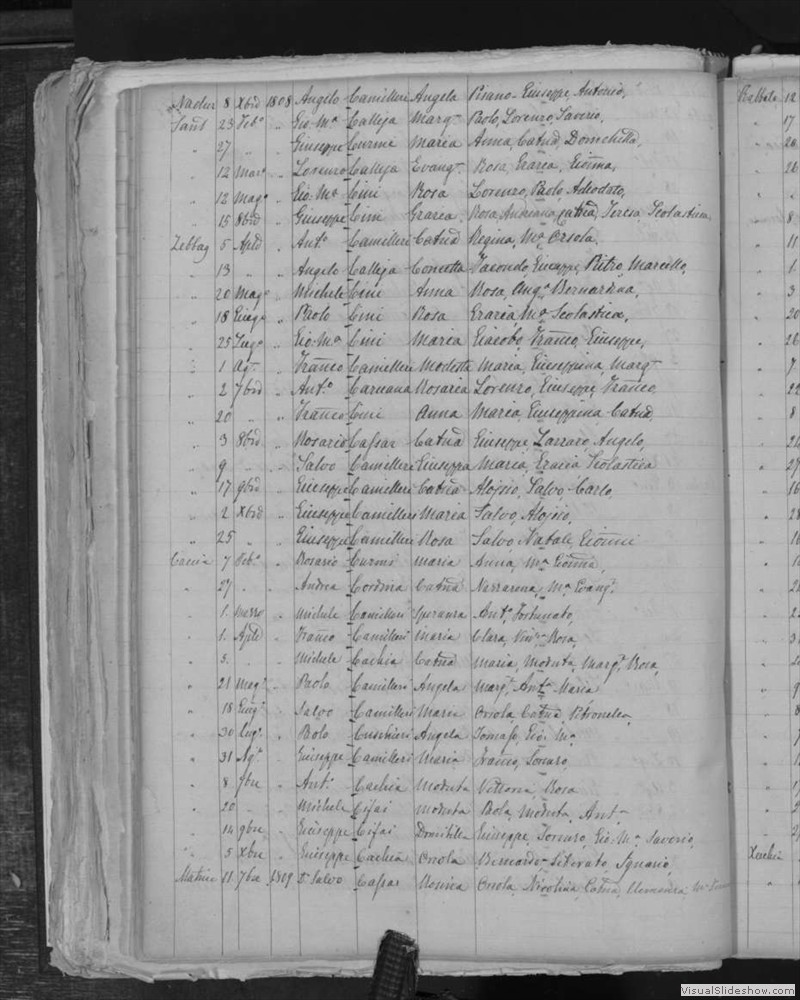 Nadur 8 Xbrē 1808 Angelo Camilleri Angela Pisano - Giuseppe, Antonio,
Sant 23 Feb.o " Gio: M.a Calleja Marg.- Paolo, Lorenzo, Saverio,
" 27 " " Giuseppe Curmi Maria Anna, Catñã, Domchilla,
" 12 Mar.o " Lorenzo Calleja Evang.- Rosa, Grazia, Gioñna,
" 12 Mag.o " Gio: M.a Cini Rosa Lorenzo, Paolo, Adeodato,
" 15 8brē " Giuseppe Cini Grazia Rosa, Andreana, Catñã, Teresa, Scolastica,
Zebbag 5 Aplē " Ant.o Camilleri Catñã Regina, M.a Orsola.
" 13 " " Angelo Calleja Concetta Facondo, Giuseppe, Pietro, Marcello,
" 20 Mag.o " Michele Cini Anna Rosa, Ang.a Bernardina,
" 18 Giug.o " Paolo Cini Rosa Grazia, M.a Scolastica,
" 25 Lug.o " Gio: M.a Cini Maria Giacobo, Franco, Giuseppe,
" 1 Ag.- " Franco Camilleri Modesta Maria, Giuseppina, Marg.-
" 2 7brē " Ant.o Caruana Rosaria Lorenzo, Giuseppe, Franco,
" 20 " " Franco Cini Anna Maria, Giuseppina, Catñã,
" 3 8brē " Rosario Cassar Catñã Giuseppe, Lazzaro, Angelo,
" 9 " " Salvo Camilleri Giuseppa Maria, Grazia Scolastica
" 17 9brē " Giuseppe Camilleri Catñã Aloisio, Salvo - Carlo,
" 2 Xbrē " Giuseppe Camilleri Maria Salvo, Aloisio,
" 25 " " Giuseppe Camilleri Rosa Salvo, Natale, Gioñni
7 Feb.o " Rosario Curmi Maria Anna, M.a Gioñna,
" 27 " " Andrea Cordina Catñã Nazzarena, M.a Evang.t
" 1. Marzo " Michele Camilleri Speranza Ant.o Fortunato,
" 1. Aplē " Franco Camilleri Maria Clara, Rosa,
" 5. " " Michele Cachia Catñã Maria, Modesta, Marg.t Rosa,
" 21 Mag.o " Paolo Camilleri Angela Marg.t Ant.a Maria
" 18 Giug.o " Salvo Camilleri Maria Orsola, Catñã, Petronella,
" 30 Lug.o " Paolo Cuschieri Angela Tomaso, Gio: M.a
" 31 Ag.o " Giuseppe Camilleri Maria Franco, Lorenzo,
" 8 7bre " Ant.o Cachia Modesta Vittoria, Rosa
" 20 " " Michele Cifai Modesta Paola, Modesta, Ant.-
" 14 9bre " Giuseppe Cifai Domitilla Giuseppe, Lorenzo, Gio: M.a Saverio,
" 5 Xbre " Giuseppe Cachia Orsola Bernardo - Liberato, Ignazio,
11 7bre 1809 Dr Salvo Cassar Rosina Orsola, Nicolina, Catñã,
Rabbato 12
" 17
" 26
" 8
" 11
" 1
" 3
" 20
" 26
" 7
" 22
" 8
" 27
" 16
Xeuchia
VisualSlideshow.com